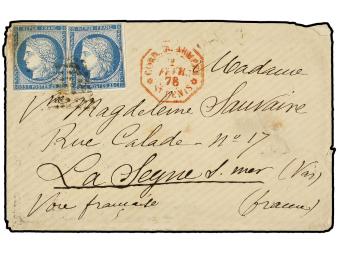 REPUB. FRANC. REPUB. FRANC.
CORR. D. ARMÉES
2
FEVR.
76
ST DENIS
Madame
Vve Magdeleine Sauvaire
Rue Calade - No 17
La Seyne s. mer (Var)
Voie française (france)